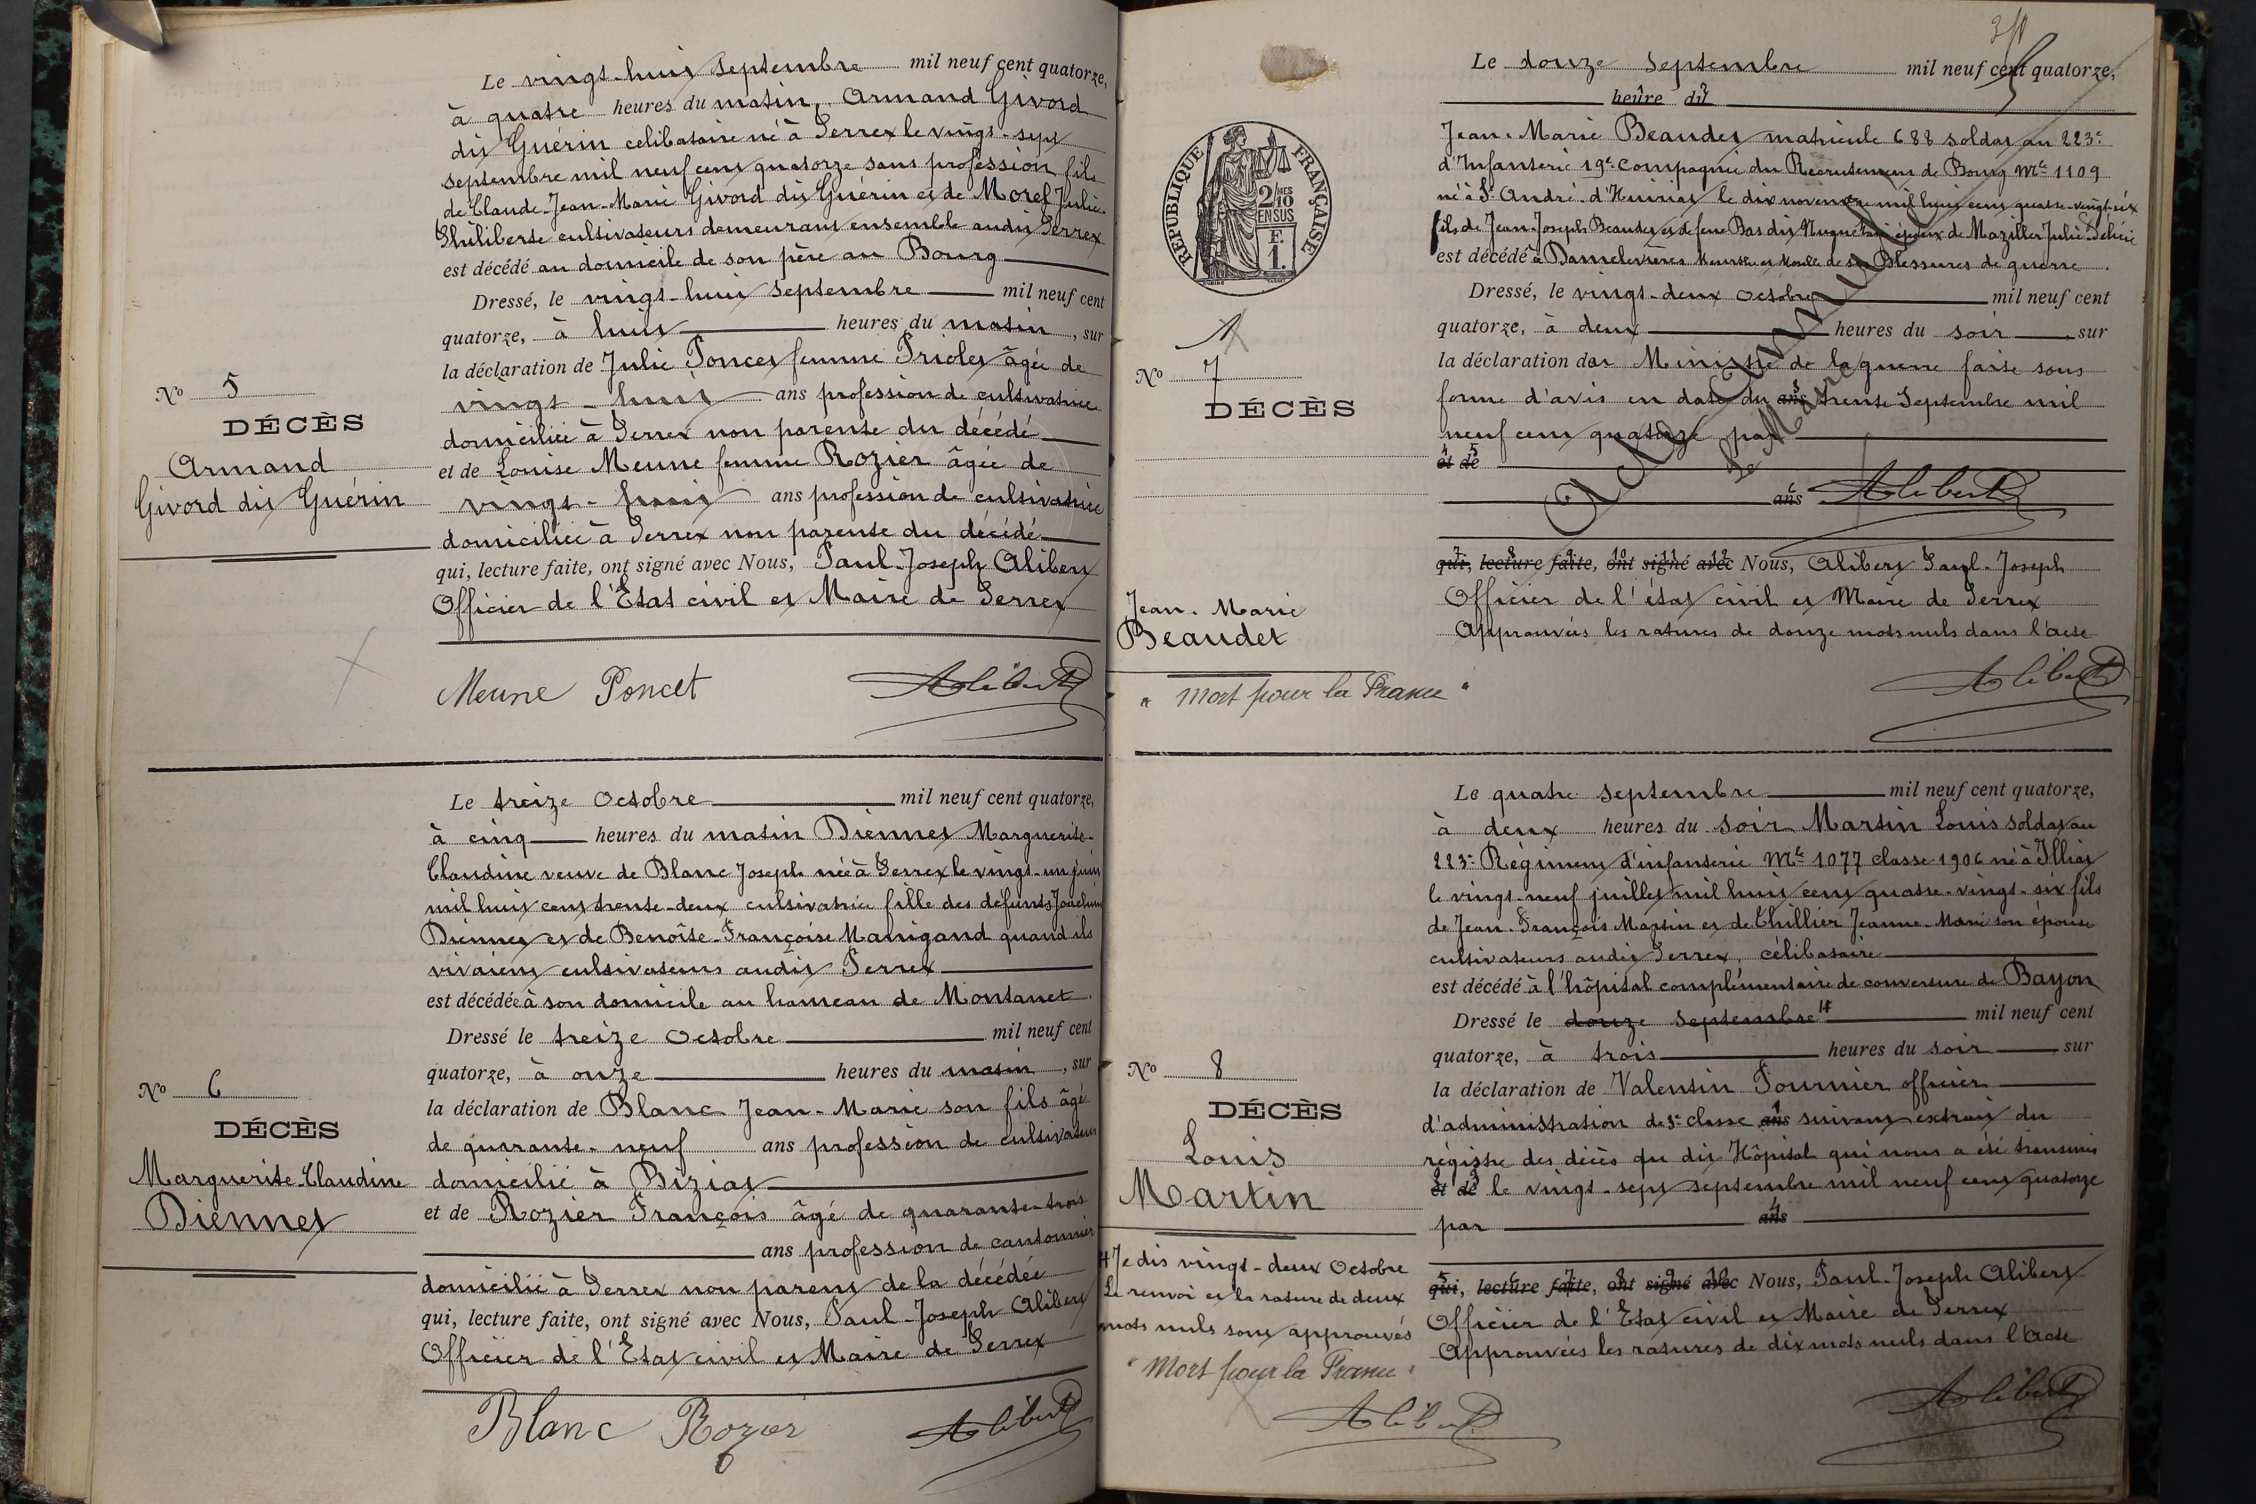 Le vingt-huit Septembre mil neuf cent quatorze,
à quatre heures du matin, Armand Givord
dit Guérin célibataire né à Perrex le vingt-sept
septembre mil neuf cent quatorze sans profession fils
de Claude-Jean-Marie Givord dit Guérin et de Morel Julie
Philiberte cultivateurs demeurant ensemble audit Perrex
est décédé au domicile de son père au Bourg
Dressé, le vingt-huit Septembre mil neuf cent
quatorze, à huit heures du matin, sur
la déclaration de Julie Poncet femme Priolet âgée de
vingt-huit ans profession de cultivatrice
domiciliée à Perrex non parente du décédé
et de Louise Meune femme Rozier âgée de
vingt-huit ans profession de cultivatrice
domiciliée à Perrex non parente du décédé
qui, lecture faite, ont signé avec Nous, Paul-Joseph Alibert
Officier de l'Etat civil et Maire de Perrex
No 5
DÉCÈS
Armand
Givord dit Guérin
Meune Poncet Alibert
Le treize Octobre mil neuf cent quatorze,
à cinq heures du matin Diennet Marguerite-
Claudine veuve de Blanc Joseph née à Perrex le vingt-un juin
mil huit cent trente-deux cultivatrice fille des défunts Joachim
Diennet et de Benoîte-Françoise Manigand quand ils
vivaient cultivateurs audit Perrex
est décédée à son domicile au hameau de Montanet.
Dressé le treize Octobre mil neuf cent
quatorze, à onze heures du matin, sur
la déclaration de Blanc Jean-Marie son fils âgé
de quarante-neuf ans profession de cultivateur
domicilié à Biziat
et de Rozier François âgé de quarante-trois
ans profession de cantonnier
domicilié à Perrex non parent de la décédée
qui, lecture faite, ont signé avec Nous, Paul-Joseph Alibert
Officier de l'Etat civil et Maire de Perrex
No 6
DÉCÈS
Marguerite-Claudine
Diennet
Blanc Rozier Alibert
Le douze Septembre mil neuf cent quatorze,
heure du
Jean-Marie Beaudet matricule 688 soldat au 223e
d'Infanterie 19e Compagnie du Recrutement de Bourg Mle 1109
né à St André d'Huiriat le dix novembre mil huit cent quatre-vingt-six
fils de Jean-Joseph Beaudet et de feue Bas dit Nugue époux de Maziller Julie-Délice
est décédé à Damelevières Meurthe et Moselle de ses Blessures de guerre.
Dressé, le vingt-deux Octobre mil neuf cent
quatorze, à deux heures du soir, sur
la déclaration du Ministre de la guerre faite sous
forme d'avis en date du ans trente Septembre mil
neuf cent quatorze par
et de
ans Alibert
qui, lecture faite, ont signé avec Nous, Alibert Paul-Joseph
Officier de l'état civil et Maire de Perrex
Approuvées les ratures de douze mots nuls dans l'acte
Alibert
Acte Annulé
Le Maire
RÉPUBLIQUE FRANÇAISE
2/10MES
EN SUS
F.
1.
No 7
DÉCÈS
Jean-Marie
Beaudet
"Mort pour la France"
Le quatre Septembre mil neuf cent quatorze,
à deux heures du soir Martin Louis soldat au
223e Régiment d'infanterie Mle 1077 classe 1906 né à Illiat
le vingt-neuf juillet mil huit cent quatre-vingt-six fils
de Jean-François Martin et de Chillier Jeanne-Marie son épouse
cultivateurs audit Perrex, célibataire
est décédé à l'hôpital complémentaire de couverture de Bayon
Dressé le douze Septembre # mil neuf cent
quatorze, à trois heures du soir, sur
la déclaration de Valentin Fournier officier
d'administration de 3e classe ans suivant extrait du
régistre des décès du dit Hôpital qui nous a été transmis
et de le vingt-sept septembre mil neuf cent quatorze
par ans
qui, lecture faite, ont signé avec Nous, Paul-Joseph Alibert
Officier de l'Etat civil et Maire de Perrex
Approuvées les ratures de dix mots nuls dans l'acte
Alibert
No 8
DÉCÈS
Louis
Martin
# Je dis vingt-deux Octobre
Le renvoi et la rature de deux
mots nuls sont approuvés
"Mort pour la France"
Alibert